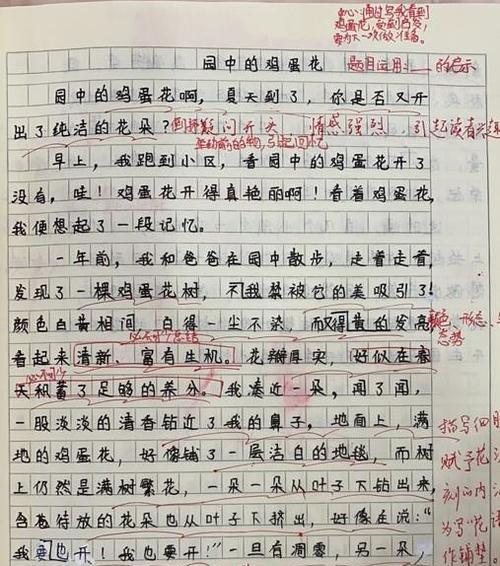 中心：通过写我看到
鸡蛋花，
要为下一次做准备。
园中的鸡蛋花 题目运用 的启示
园中的鸡蛋花啊，夏天到了，你是否又开
出了纯洁的花朵？ 疑问开头 情感强烈，引起读者兴趣
引起回忆
早上，我跑到小区，看园中的鸡蛋花开了
没有，哇！鸡蛋花开得真艳丽啊！看着鸡蛋花，
我便想起了一段记忆。
一年前，我和爸爸在园中散步，走着走着，
发现了一棵鸡蛋花树，我禁被它的美吸引了！
颜色白黄相间，白得一尘不染，而黄的发亮 颜色、形态
态势
必不可少总结
看起来清新、富有生机。花瓣厚实，好似在春
必不可少
天积蓄了足够的养分。我凑近一朵，闻了闻，
一股淡淡的清香钻近了我的鼻子，地面上，满 描写细
地的鸡蛋花，好像铺了一层洁白的地毯，而树 赋予花
上仍然是满树繁花，一朵一朵从叶子下钻出来， 刻的内
含苞待放的花朵也从叶子下挤出，好像在说：“ 为写“花语
我要也开！我也要开！”一旦有凋零，另一朵， 作铺垫